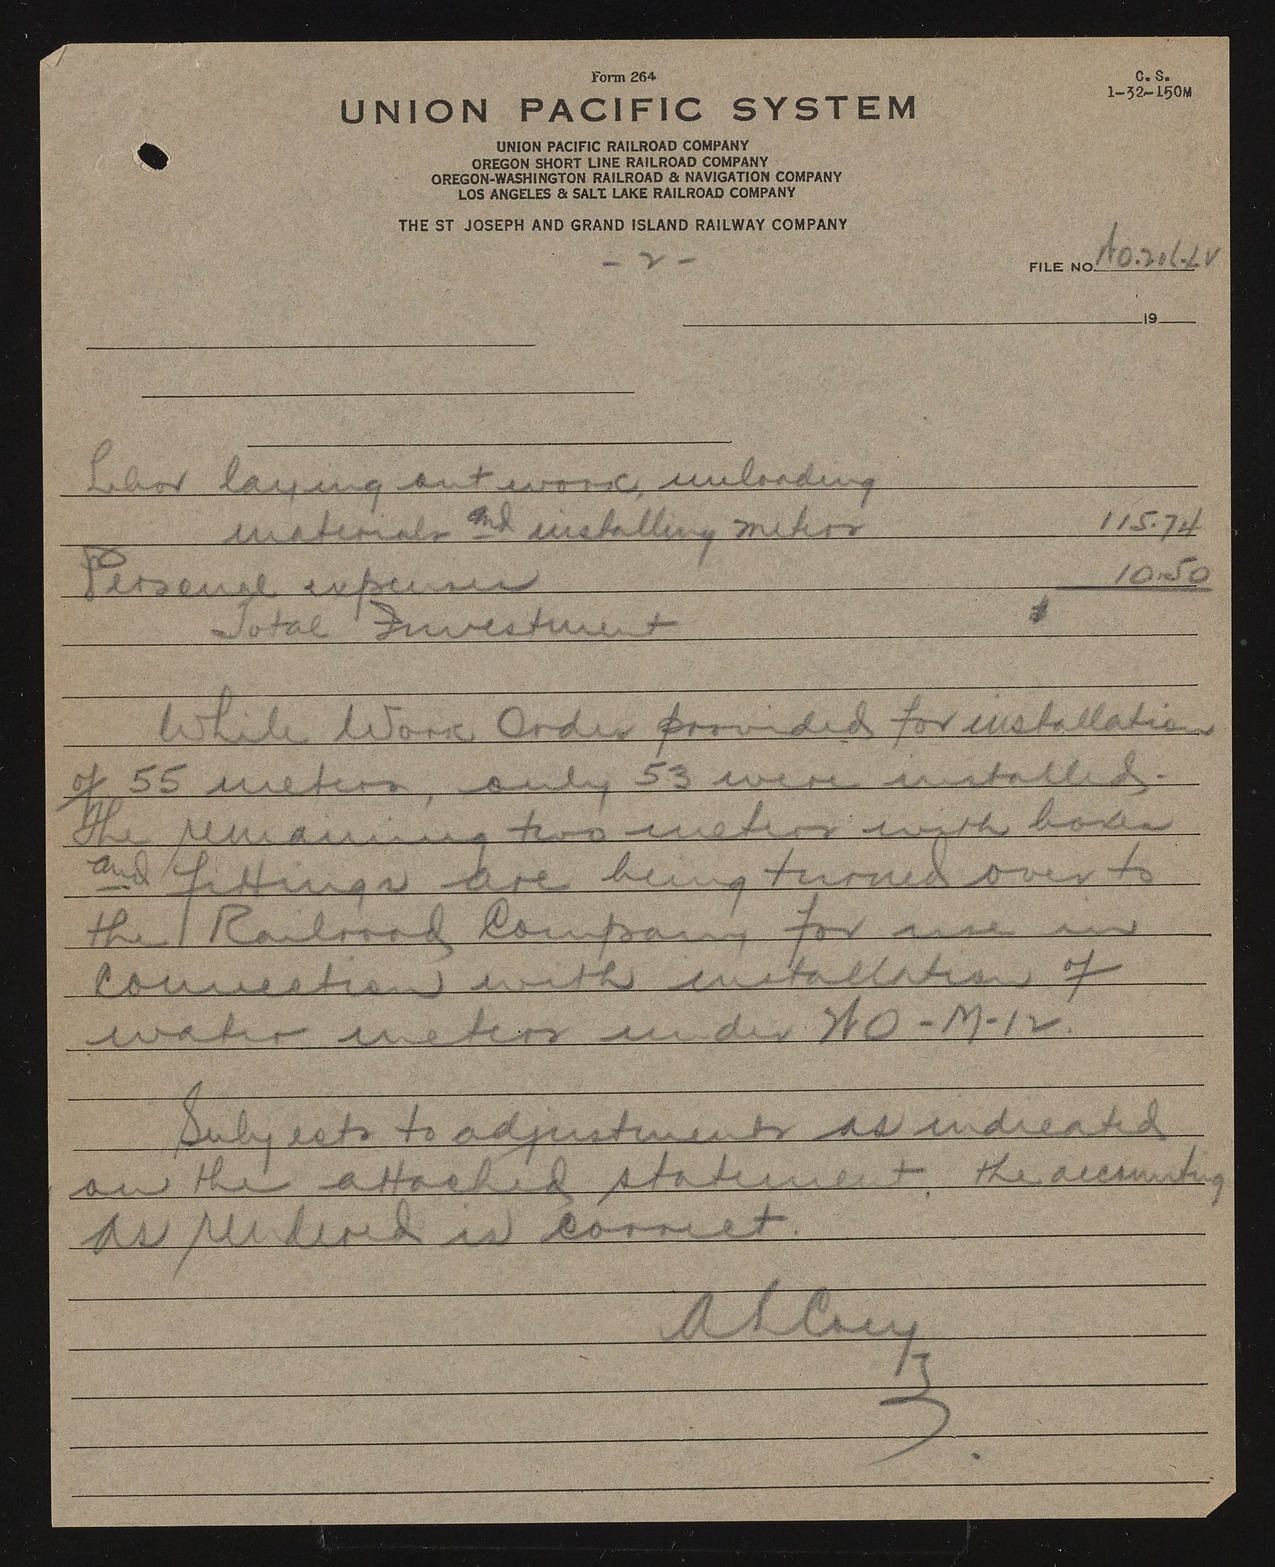 Form 264
C. S.
1-32-150M
UNION PACIFIC SYSTEM
UNION PACIFIC RAILROAD COMPANY
OREGON SHORT LINE RAILROAD COMPANY
OREGON-WASHINGTON RAILROAD & NAVIGATION COMPANY
LOS ANGELES & SALT LAKE RAILROAD COMPANY
THE ST JOSEPH AND GRAND ISLAND RAILWAY COMPANY
- 2 -
FILE NO.
19
Labor laying out work, unloading
materials and installing meters 115.74
Personal expenses 10.50
Total Investment $
While Work Order provided for installation
of 55 meters, only 53 were installed.
The remaining two meters with boxes
and fittings are being turned over to
the Railroad Company for use in
connection with installation of
water meters under WO-M-12.
Subjects to adjustments as indicated
on the attached statement, the accounting
as rendered is correct.